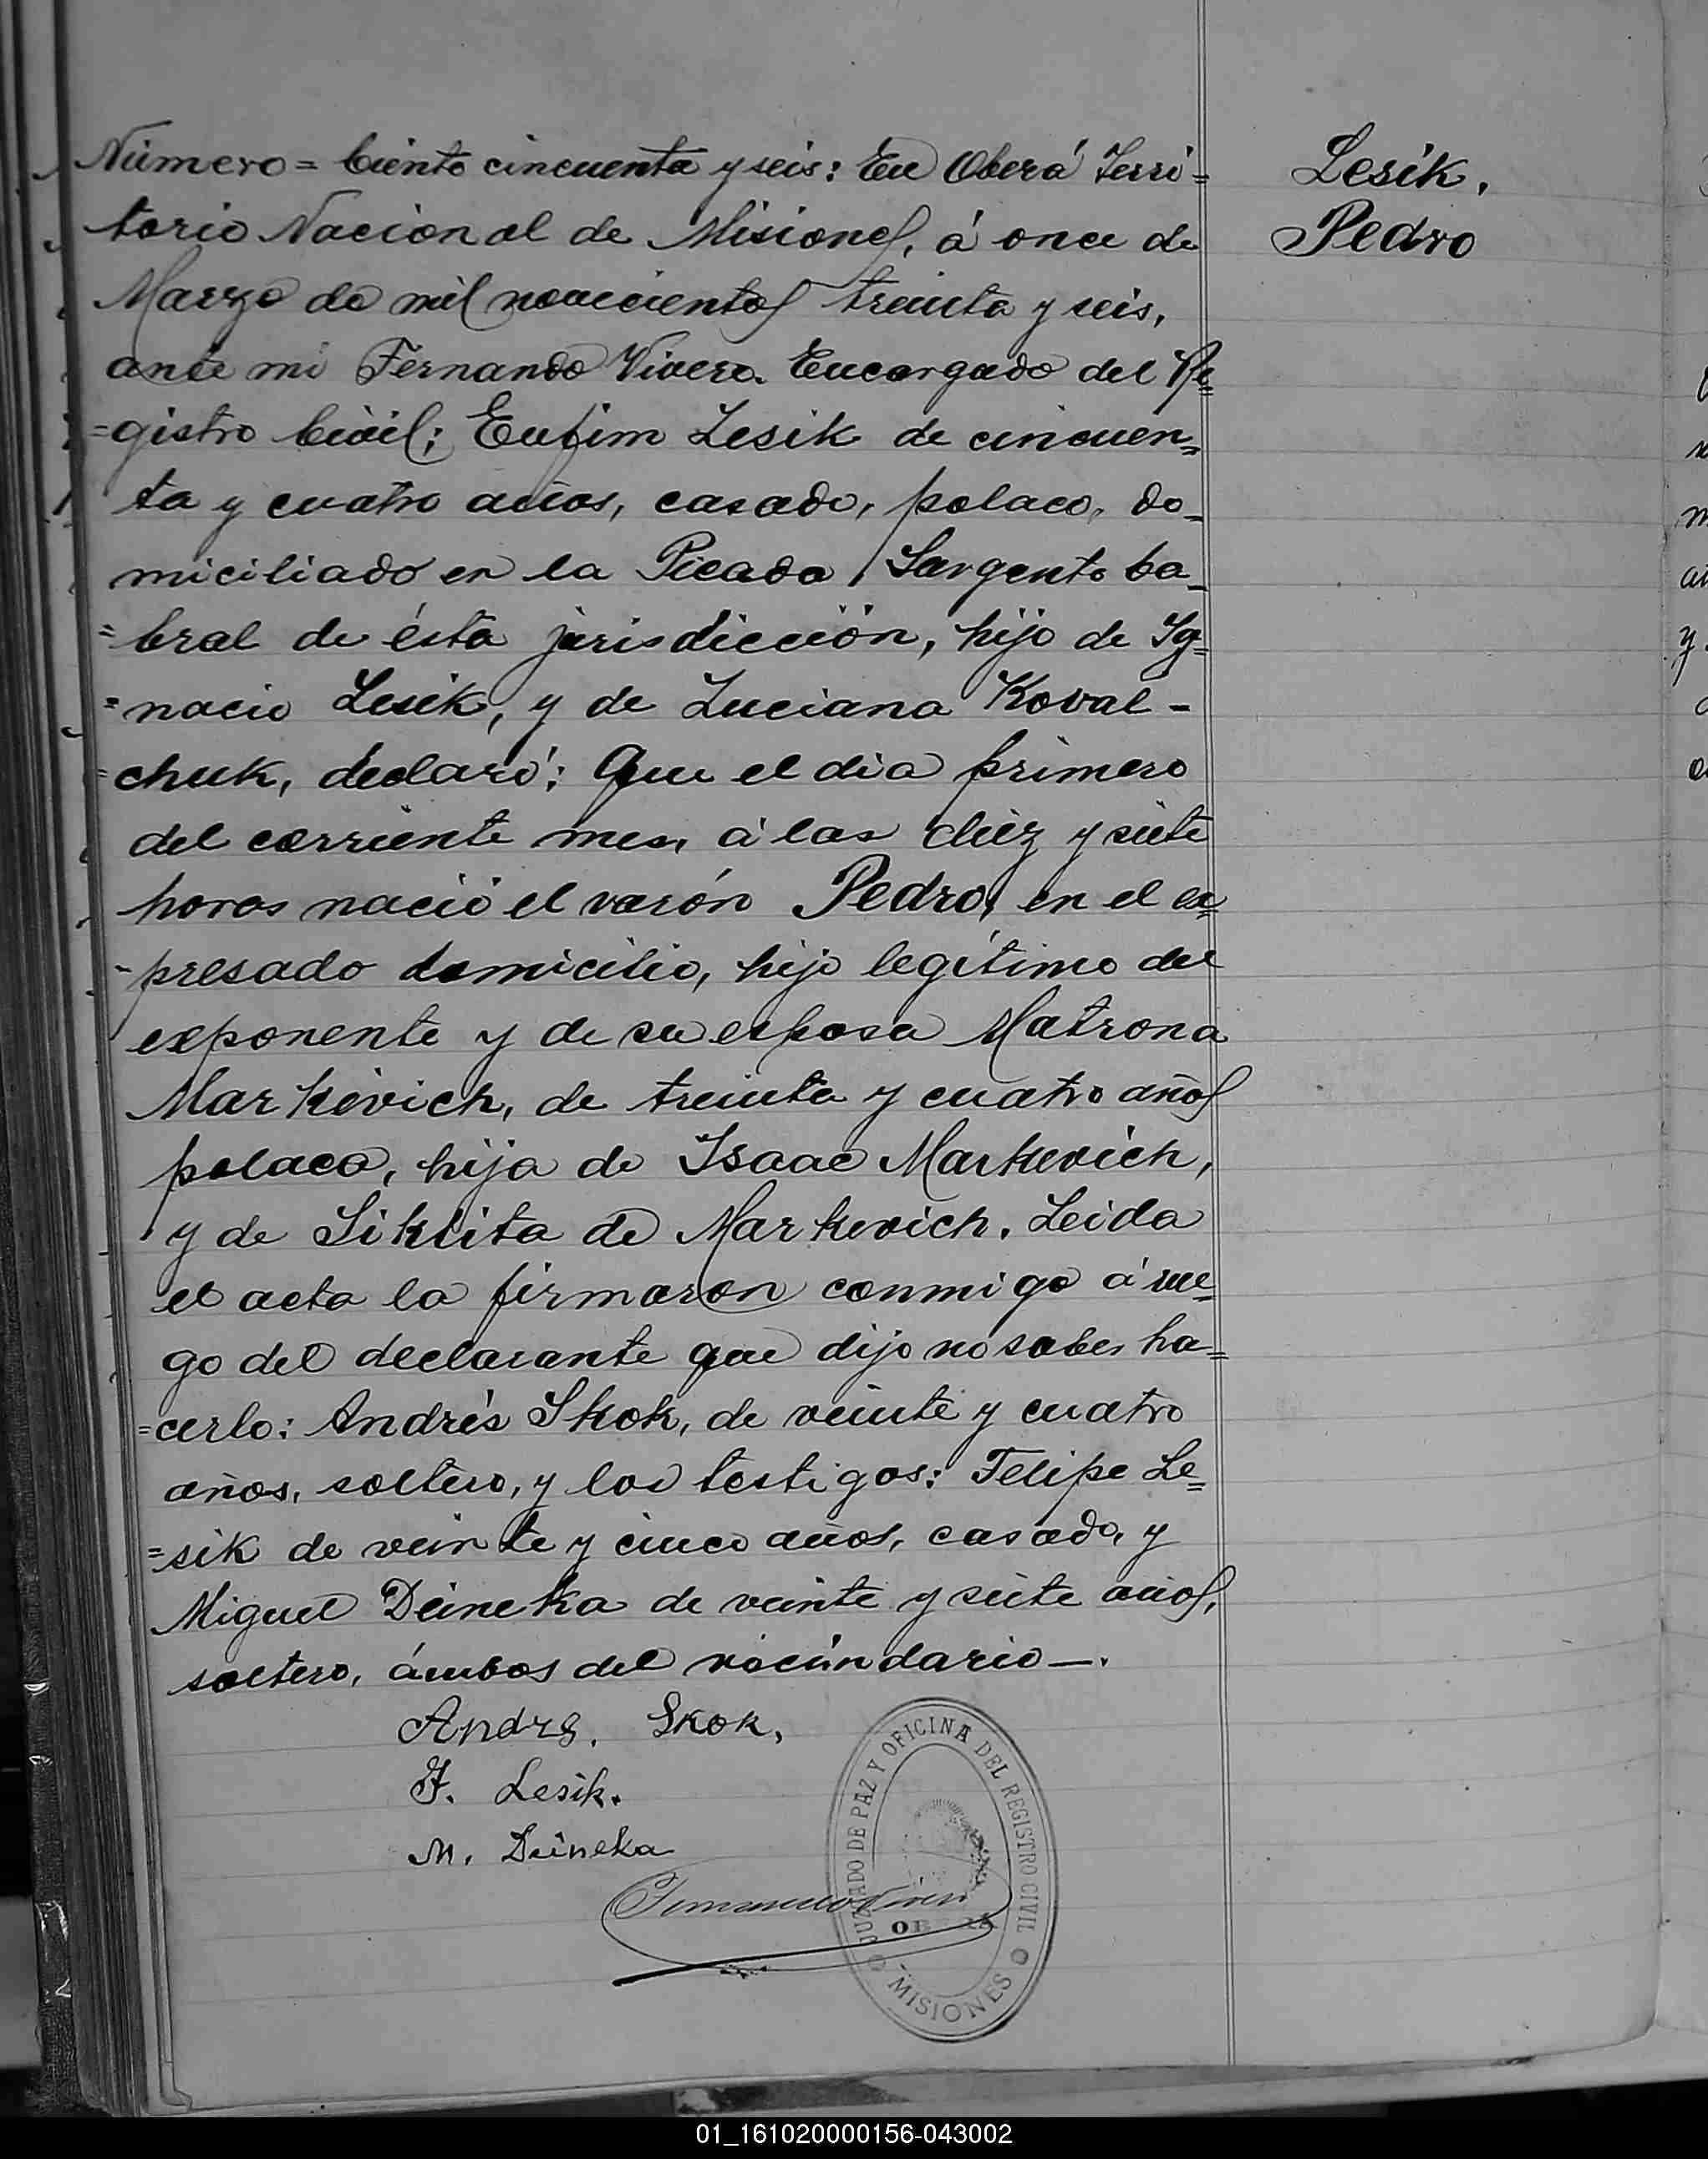 Número = Ciento cincuenta y seis: En Oberá Terri=
torio Nacional de Misiones, á once de
Marzo de mil novecientos treinta y seis,
ante mi Fernando Vivero. Encargado del Re=
=gistro Civil; Eufim Lesik de cincuen=
ta y cuatro años, casado, polaco, do_
miciliado en la Picada Sargento Ca_
=bral de ésta jurisdicción, hijo de Ig=
=nacio Lesik, y de Luciana Koval-
=chuk, declaró: Que el dia primero
del corriente mes, á las diez y siete
horas nació el varón Pedro, en el ex=
-presado domicilio, hijo legítimo del
exponente y de su esposa Matrona
Markevich, de treinta y cuatro años
polaca, hija de Isaac Markevich,
y de Siklita de Markevich. Leida
el acta la firmaron conmigo á rue=
go del declarante que dijo no saber ha=
=cerlo: Andrés Skok, de veinte y cuatro
años, soltero, y los testigos: Felipe Le=
=sik de veinte y cinco años, casado, y
Miguel Deineka de veinte y siete años,
soltero, ámbos del vecindario—.
Andrs. Skok,
F. Lesik.
M. Deineka
JUZGADO DE PAZ Y OFICINA DEL REGISTRO CIVIL
MISIONES
Lesik,
Pedro
01_161020000156-043002